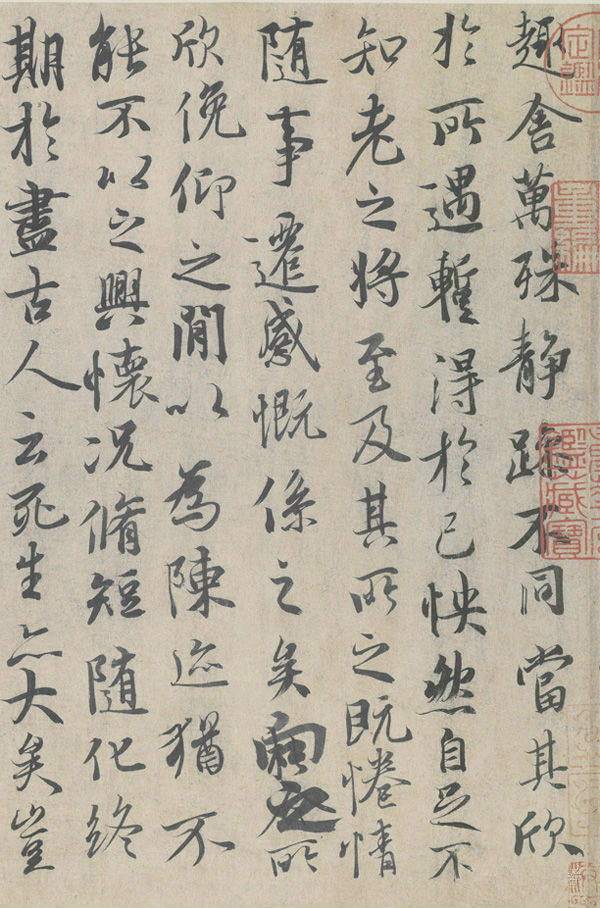 趣舍萬殊靜躁不同當其欣
於所遇暫得於己怏然自足不
知老之將至及其所之既惓情
隨事遷感慨係之矣向之所
欣俛仰之閒以為陳迹猶不
能不以之興懷況脩短隨化終
期於盡古人云死生亦大矣豈